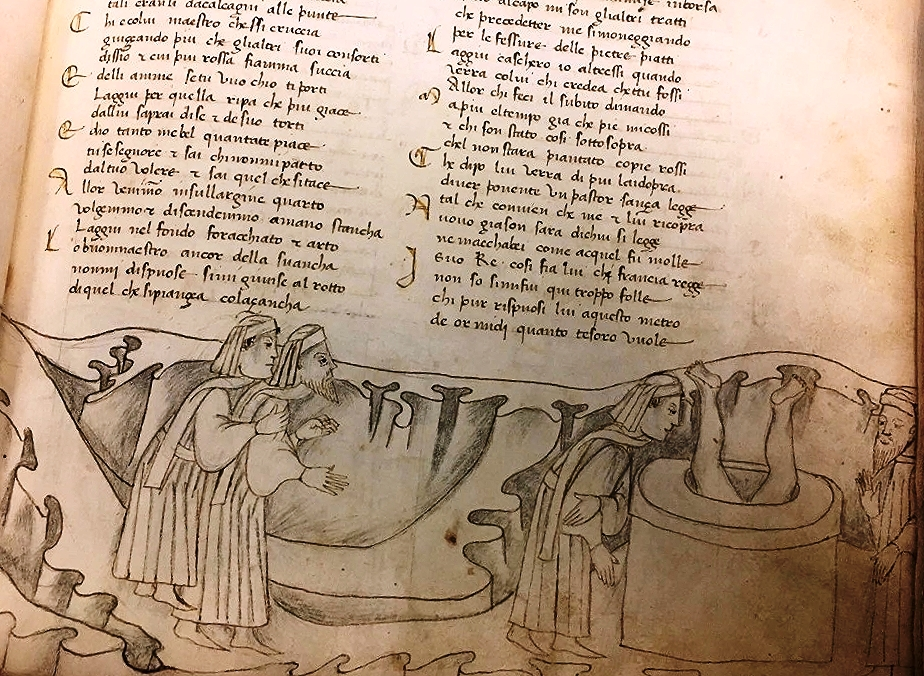 tali eranli dacalcagni alle punte
Chi e colui maestro chessi cruccia
guizando piu che glialtri suoi consorti
dissio & cui piu rossa fiamma succia
Et elli amme setu vuo chio ti porti
Laggiu per quella ripa che piu giace
dallui saprai di se & de suo torti
Et io tanto mebel quantate piace
tu se segnore & sai chi nonmi patto
daltuo volere & sai quel che si tace
Allor venimo insullargine quarto
volgemmo & discendemmo amano stancha
Laggiu nel fondo foracchiato & arto
Lo buonmaestro ancor della suancha
nonmi dispuose si mi giunse al rotto
di quel che si piangea cola zancha
alcapo mi son glialtri tratti
che precedetter me simoneggiando
per le fessure delle pietre piatti
Laggiu caschero io altressi quando
verra colui chi credea chettu fossi
Allor chi feci il subito dimando
Ma piu eltempo gia che pie micossi
& chi son stato cosi sottosopra
chel non stara piantato copie rossi
Che dipo lui verra di piu laidopra
diver ponente un pastor sanza legge
tal che convien che me & lui ricopra
Nuovo giason sara dichui si legge
ne macchabei come acquel fu molle
suo Re cosi fia lui che francia regge
Inon so simmi fui qui troppo folle
chi pur rispuosi lui aquesto metro
de or midi quanto tesoro vuole